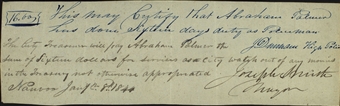 16.00
This may Certify that Abraham Palmer
has done Sixteen days duty as Policeman
J Dunham High Poli
The City Treasurer will pay Abraham Palmer the
Sum of Sixteen dollars for services as City watch out of any monies
in the Treasury not otherwise appropriated
Joseph Smith
Nauvoo Jany 8th 1844
Mayor